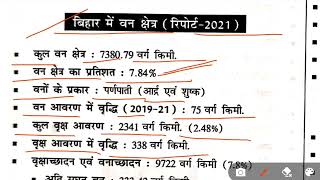 बिहार में वन क्षेत्र (रिपोर्ट-2021)
• कुल वन क्षेत्र : 7380.79 वर्ग किमी.
• वन क्षेत्र का प्रतिशत : 7.84%
• वनों के प्रकार : पर्णपाती (आर्द्र एवं शुष्क)
• वन आवरण में वृद्धि (2019-21) : 75 वर्ग किमी.
• कुल वृक्ष आवरण : 2341 वर्ग किमी. (2.48%)
• वृक्ष आवरण में वृद्धि : 338 वर्ग किमी.
• वृक्षाच्छादन एवं वनाच्छादन : 9722 वर्ग किमी. (7.8%)